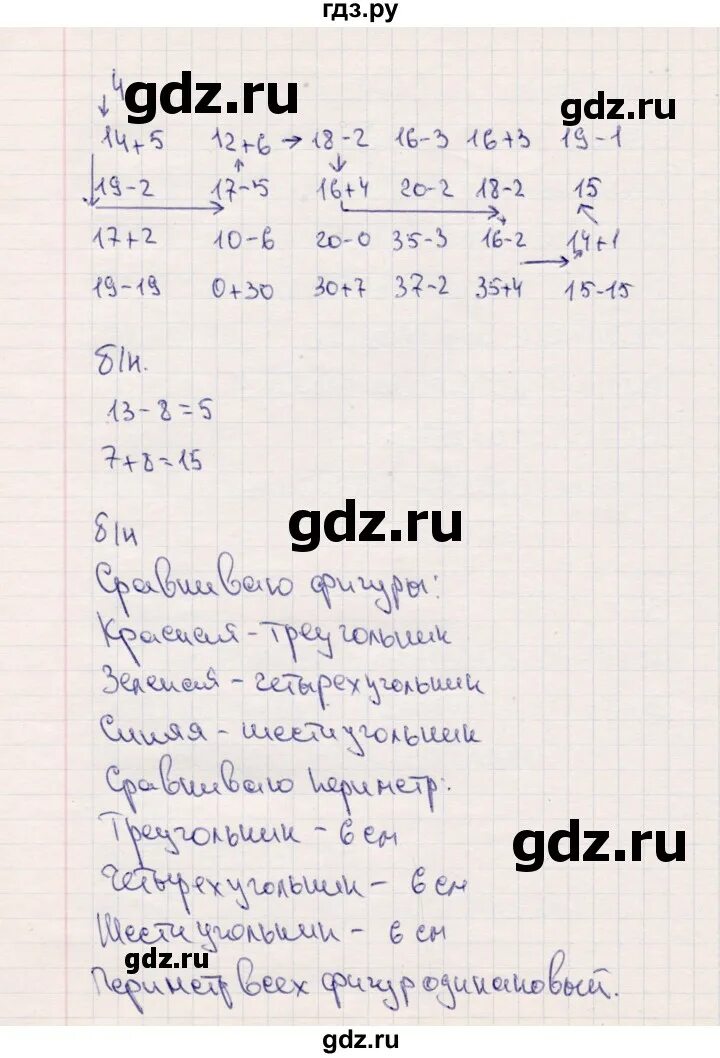 гдз.ру
4
gdz.ru
gdz.ru
14+5 12+6 18-2 16-3 16+3 19-1
19-2 17-5 16+4 20-2 18-2 15
17+2 10-6 20-0 35-3 16-2 14+1
19-19 0+30 30+7 37-2 35+4 15-15
б/н.
13-8=5
7+8=15
gdz.ru
б/н
Сравниваю фигуры:
Красная - треугольник
Зеленая - четырехугольник
Синяя - шестиугольник
Сравниваю периметр:
Треугольник - 6 см
gdz.ru
Четырехугольник - 6 см
Шестиугольник - 6 см
gdz.ru
Периметр всех фигур одинаковый.
gdz.ru